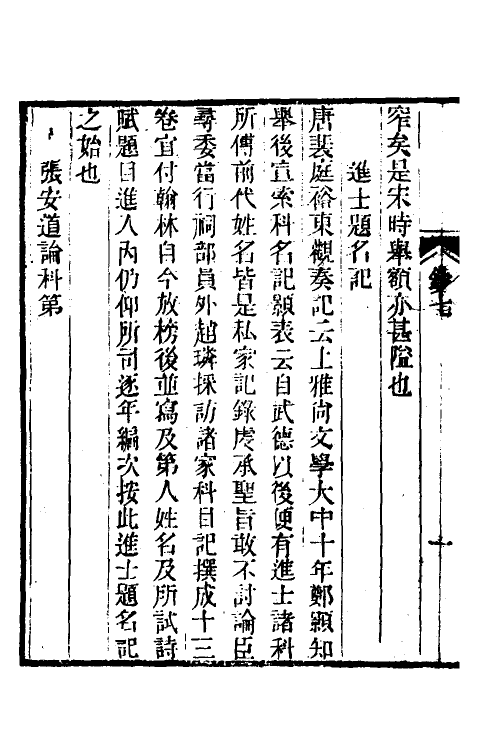 窄矣是宋時舉額亦甚隘也
進士題名記
唐裴庭裕東觀奏記云上雅尚文學大中十年鄭顥知
舉後宣索科名記顥表云自武德以後便有進士諸科
所傳前代姓名皆是私家記錄虔承聖旨敢不討論臣
尋委當行祠部員外趙璘採訪諸家科目記撰成十三
卷宜付翰林自今放榜後並寫及第人姓名及所試詩
賦題目進入內仍仰所司逐年編次按此進士題名記
之始也
張安道論科第